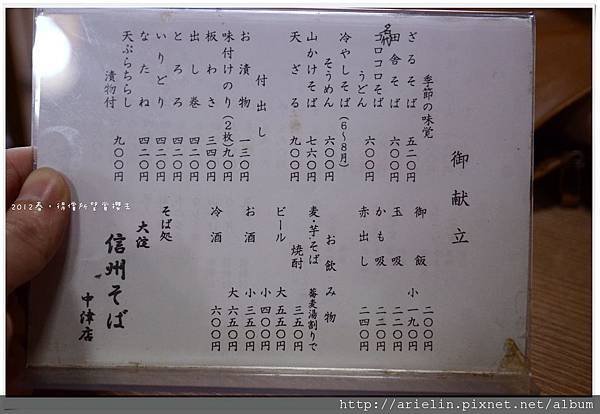 御献立
季節の味覚
ざるそば 五二〇円
田舎そば 六〇〇円
コロコロそば
うどん 六〇〇円
冷やしそば(6〜8月)
そうめん 六〇〇円
山かけそば 七六〇円
天ざる 九〇〇円
付出し
お漬物 一三〇円
味付けのり(2枚)九〇円
板わさ 三四〇円
出し巻 四二〇円
とろろ 四二〇円
いりどり 四二〇円
なたね 四二〇円
天ぷらちらし 九〇〇円
漬物付
御飯 二〇〇円
小 一九〇円
玉吸 二二〇円
かも吸 二二〇円
赤出し 二四〇円
お飲み物
麦・芋・そば焼酎 蕎麦湯割りで 三五〇円
ビール 大 五五〇円
小 四〇〇円
お酒 小 三五〇円
大 六五〇円
冷酒 六〇〇円
そば処
大淀
信州そば
中津店
2012春。得償所望賞櫻王
http://arielin.pixnet.net/album